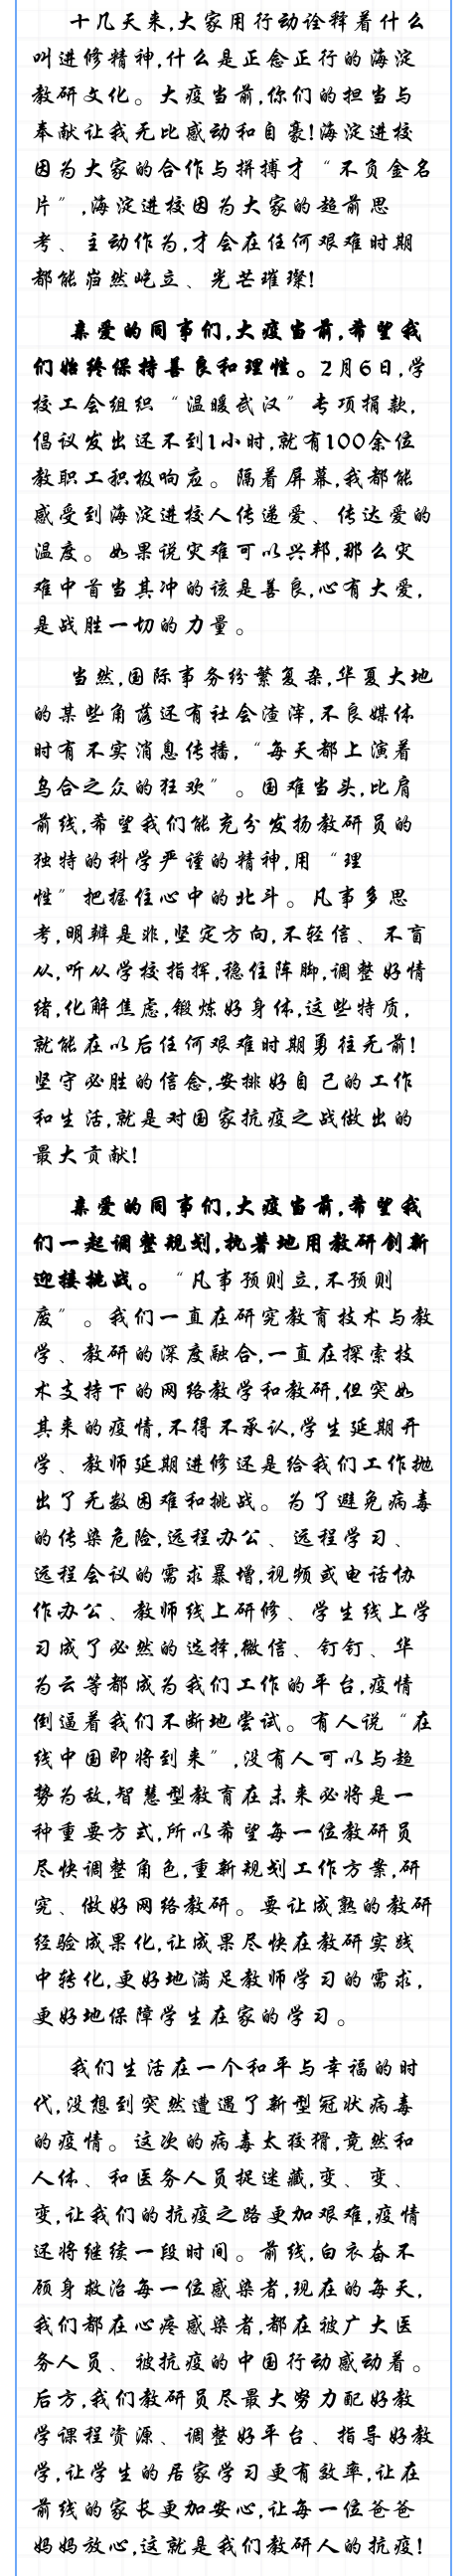 十几天来,大家用行动诠释着什么
叫进修精神,什么是正念正行的海淀
教研文化。大疫当前,你们的担当与
奉献让我无比感动和自豪!海淀进校
因为大家的合作与拼搏才“不负金名
片”,海淀进校因为大家的超前思
考、主动作为,才会在任何艰难时期
都能岿然屹立、光芒璀璨!
亲爱的同事们,大疫当前,希望我
们始终保持善良和理性。2月6日,学
校工会组织“温暖武汉”专项捐款,
倡议发出还不到1小时,就有100余位
教职工积极响应。隔着屏幕,我都能
感受到海淀进校人传递爱、传达爱的
温度。如果说灾难可以兴邦,那么灾
难中首当其冲的该是善良,心有大爱,
是战胜一切的力量。
当然,国际事务纷繁复杂,华夏大地
的某些角落还有社会渣滓,不良媒体
时有不实消息传播,“每天都上演着
乌合之众的狂欢”。国难当头,比肩
前线,希望我们能充分发扬教研员的
独特的科学严谨的精神,用“理
性”把握住心中的北斗。凡事多思
考,明辨是非,坚定方向,不轻信、不盲
从,听从学校指挥,稳住阵脚,调整好情
绪,化解焦虑,锻炼好身体,这些特质,
就能在以后任何艰难时期勇往无前!
坚守必胜的信念,安排好自己的工作
和生活,就是对国家抗疫之战做出的
最大贡献!
亲爱的同事们,大疫当前,希望我
们一起调整规划,执著地用教研创新
迎接挑战。“凡事预则立,不预则
废”。我们一直在研究教育技术与教
学、教研的深度融合,一直在探索技
术支持下的网络教学和教研,但突如
其来的疫情,不得不承认,学生延期开
学、教师延期进修还是给我们工作抛
出了无数困难和挑战。为了避免病毒
的传染危险,远程办公、远程学习、
远程会议的需求暴增,视频或电话协
作办公、教师线上研修、学生线上学
习成了必然的选择,微信、钉钉、华
为云等都成为我们工作的平台,疫情
倒逼着我们不断地尝试。有人说“在
线中国即将到来”,没有人可以与趋
势为敌,智慧型教育在未来必将是一
种重要方式,所以希望每一位教研员
尽快调整角色,重新规划工作方案,研
究、做好网络教研。要让成熟的教研
经验成果化,让成果尽快在教研实践
中转化,更好地满足教师学习的需求,
更好地保障学生在家的学习。
我们生活在一个和平与幸福的时
代,没想到突然遭遇了新型冠状病毒
的疫情。这次的病毒太狡猾,竟然和
人体、和医务人员捉迷藏,变、变、
变,让我们的抗疫之路更加艰难,疫情
还将继续一段时间。前线,白衣奋不
顾身救治每一位感染者,现在的每天,
我们都在心疼感染者,都在被广大医
务人员、被抗疫的中国行动感动着。
后方,我们教研员尽最大努力配好教
学课程资源、调整好平台、指导好教
学,让学生的居家学习更有效率,让在
前线的家长更加安心,让每一位爸爸
妈妈放心,这就是我们教研人的抗疫!